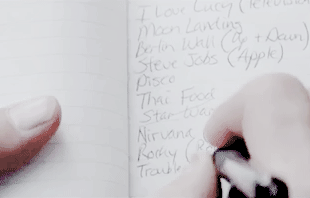 I Love Lucy (Televisio
Moon Landing
Berlin Wall (Up + Down)
Steve Jobs (Apple)
Disco
Thai Food
Star Wa
Nirvana
Rocky (R
Trouble